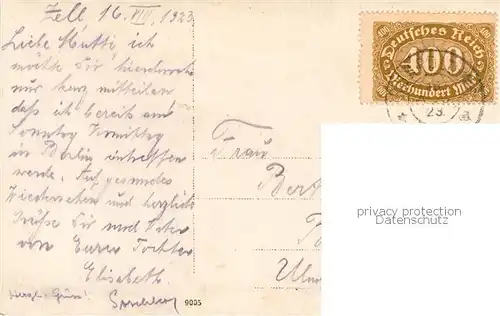 Zell, 16. VIII. 1923
Liebe Mutti, ich
möchte Dir hierdurch
nur kurz mitteilen
daß ich bereits am
Sonntag Vormittag
in Berlin eintreffen
werde. Auf gesundes
Wiedersehen und herzliche
Grüße Dir und Vater
von Eurer Tochter
Elisabeth.
Herzl. Grüße!
9035
Frau
Bert
Ulm
Deutsches Reich
400 400
400
Vierhundert Mark
23.
a
privacy protection
Datenschutz